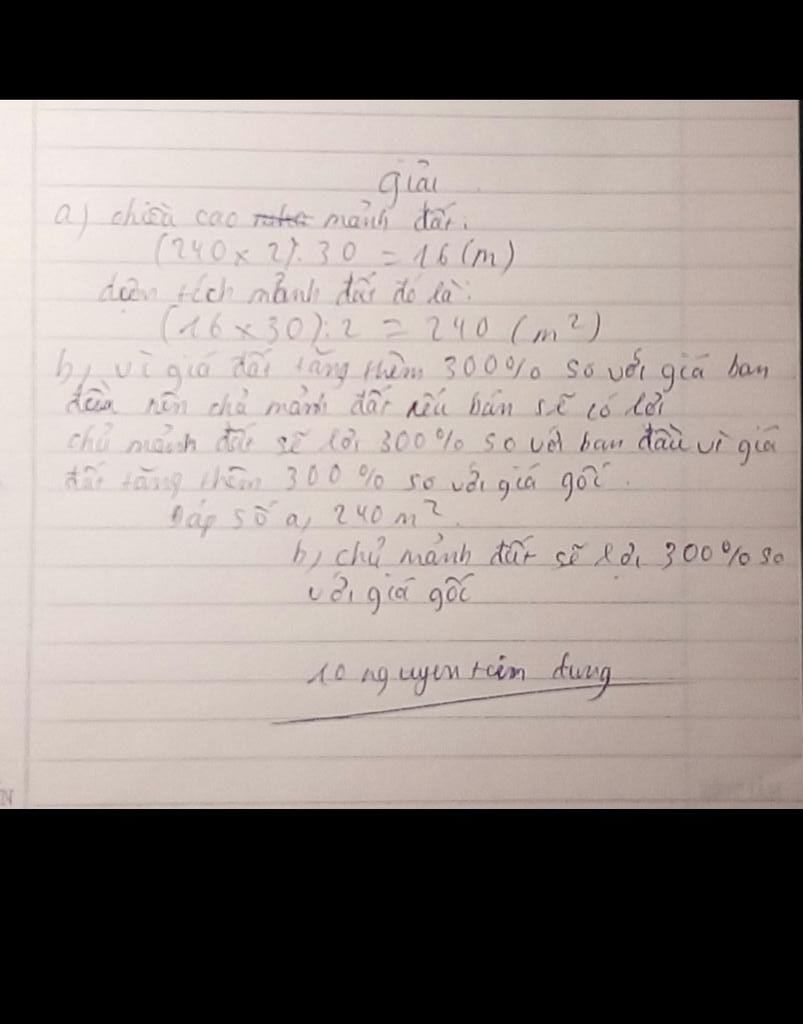 giải
a) chiều cao mảnh đất:
(240 x 2): 30 = 16 (m)
diện tích mảnh đất đó là:
(16 x 30): 2 = 240 (m²)
b, vì giá đất tăng thêm 300% so với giá ban
đầu nên chủ mảnh đất nếu bán sẽ có lời
chủ mảnh đất sẽ lời 300% so với ban đầu vì giá
đất tăng thêm 300% so với giá gốc.
Đáp số a, 240 m².
b, chủ mảnh đất sẽ lời 300% so
với giá gốc
10 nguyen dung